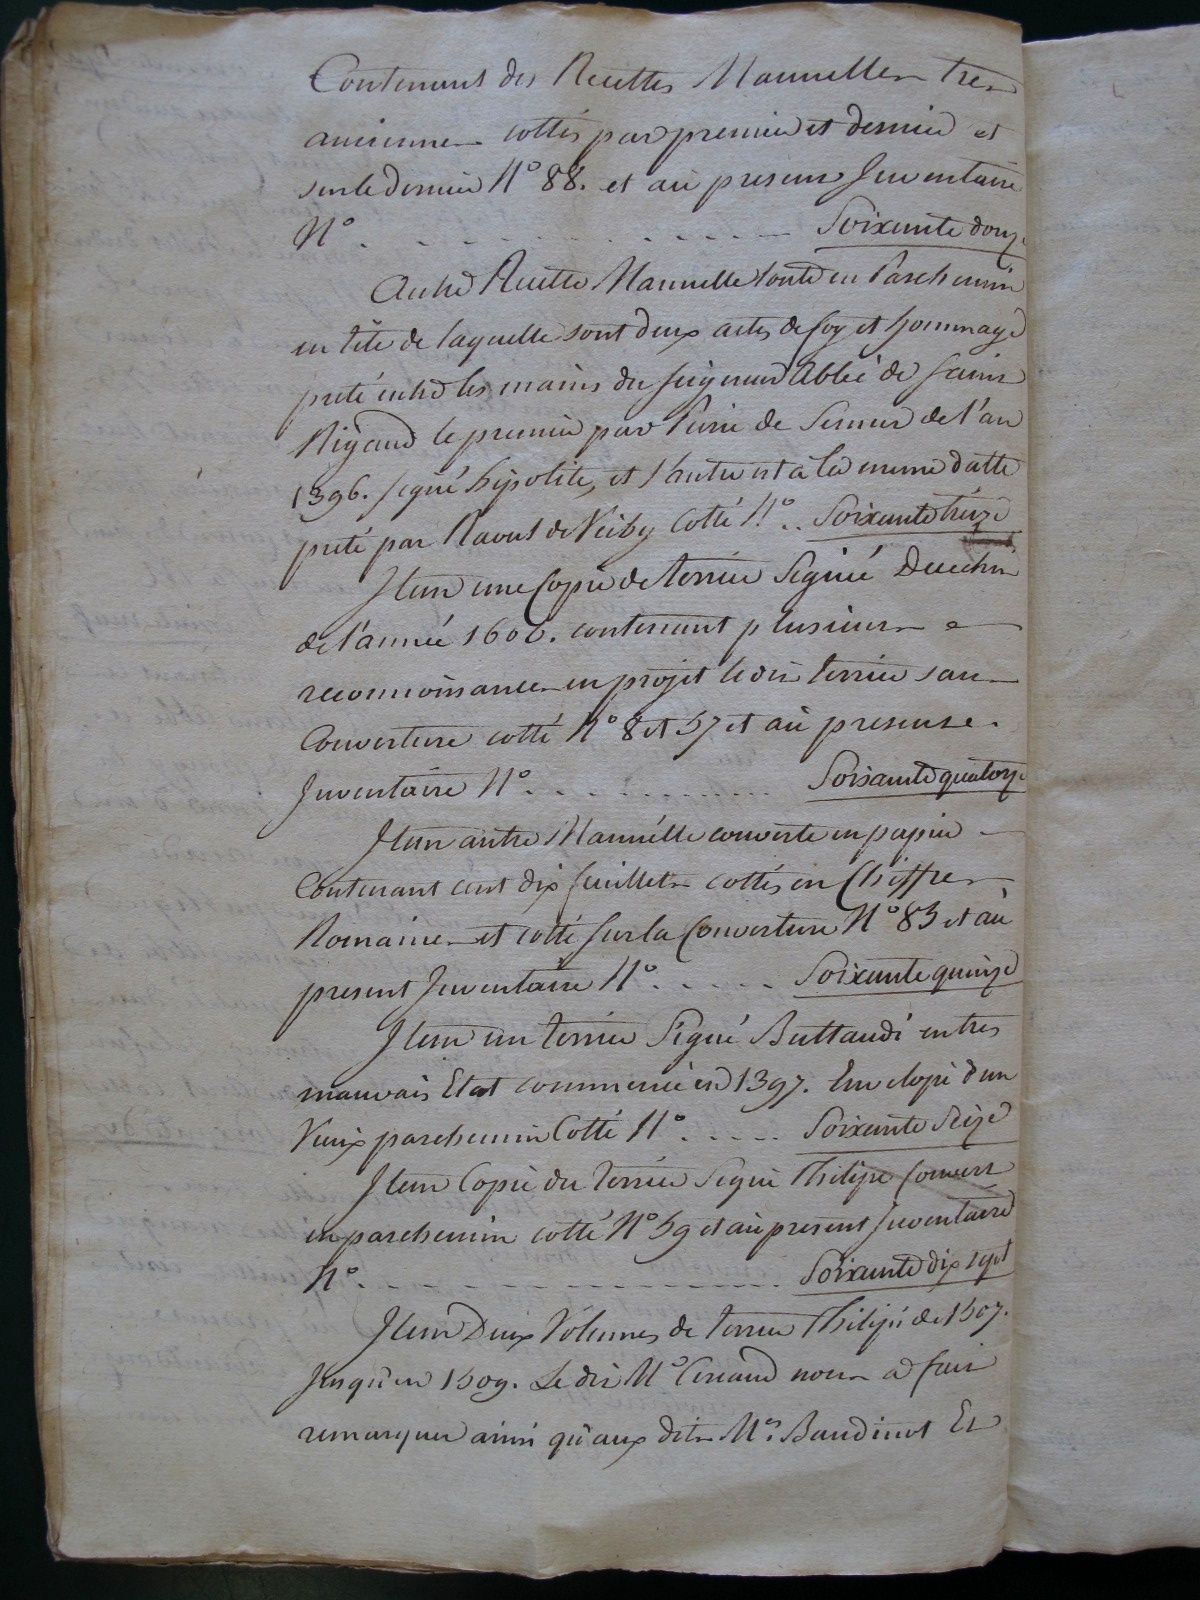 Contenant des Recettes Mannuelles tres
anciennes cottés par premier et dernier et
sur le dernier N° 88. et au present Inventaire
N° . . . . . . . . . . . . . Soixante douze
Autre Recette Mannuelle toute en Parchemin
en tête de laquelle sont deux actes de foy et hommage
preté entre les mains du seigneur Abbé de saint
Rigaud le premier par Pierre de Semur de l'an
1396. signé hipolite, et l'autre est à la meme datte
preté par Raoul de Verby Cotté N° . . Soixante treize
Item une Copie de terrier Signé
de l'année 1606. contenant plusieurs
reconnoissances en projet ledit terrier sans
Couverture cotté N° 8 et 57 et au presense.
Inventaire N° . . . . . . . . . . . Soixante quatorze
Item autre Mannuélle couverte en papier
Contenant cent dix feuillets cottés en Chiffres
Romaines et cotté sur la Couverture N° 83 et au
present Inventaire N° . . . . . Soixante quinze
Item un terrier Signé Buttaudi en tres
mauvais Etat commencé en 1397. Envelopé d'un
Vieux parchemin Cotté N° . . . . . Soixante Seize
Item Copie du terrier Signé Philipe Couvert
en parchemin cotté N° 59 et au present Inventaire
N° . . . . . . . . . . . . . . Soixante dix sept
Item Deux Volumes de terrier Philipé de 1507.
Jusqu'en 1509. Le dit Me. nous a fait
remarquer ainsi qu'aux dits Mrs. Baudinot Et